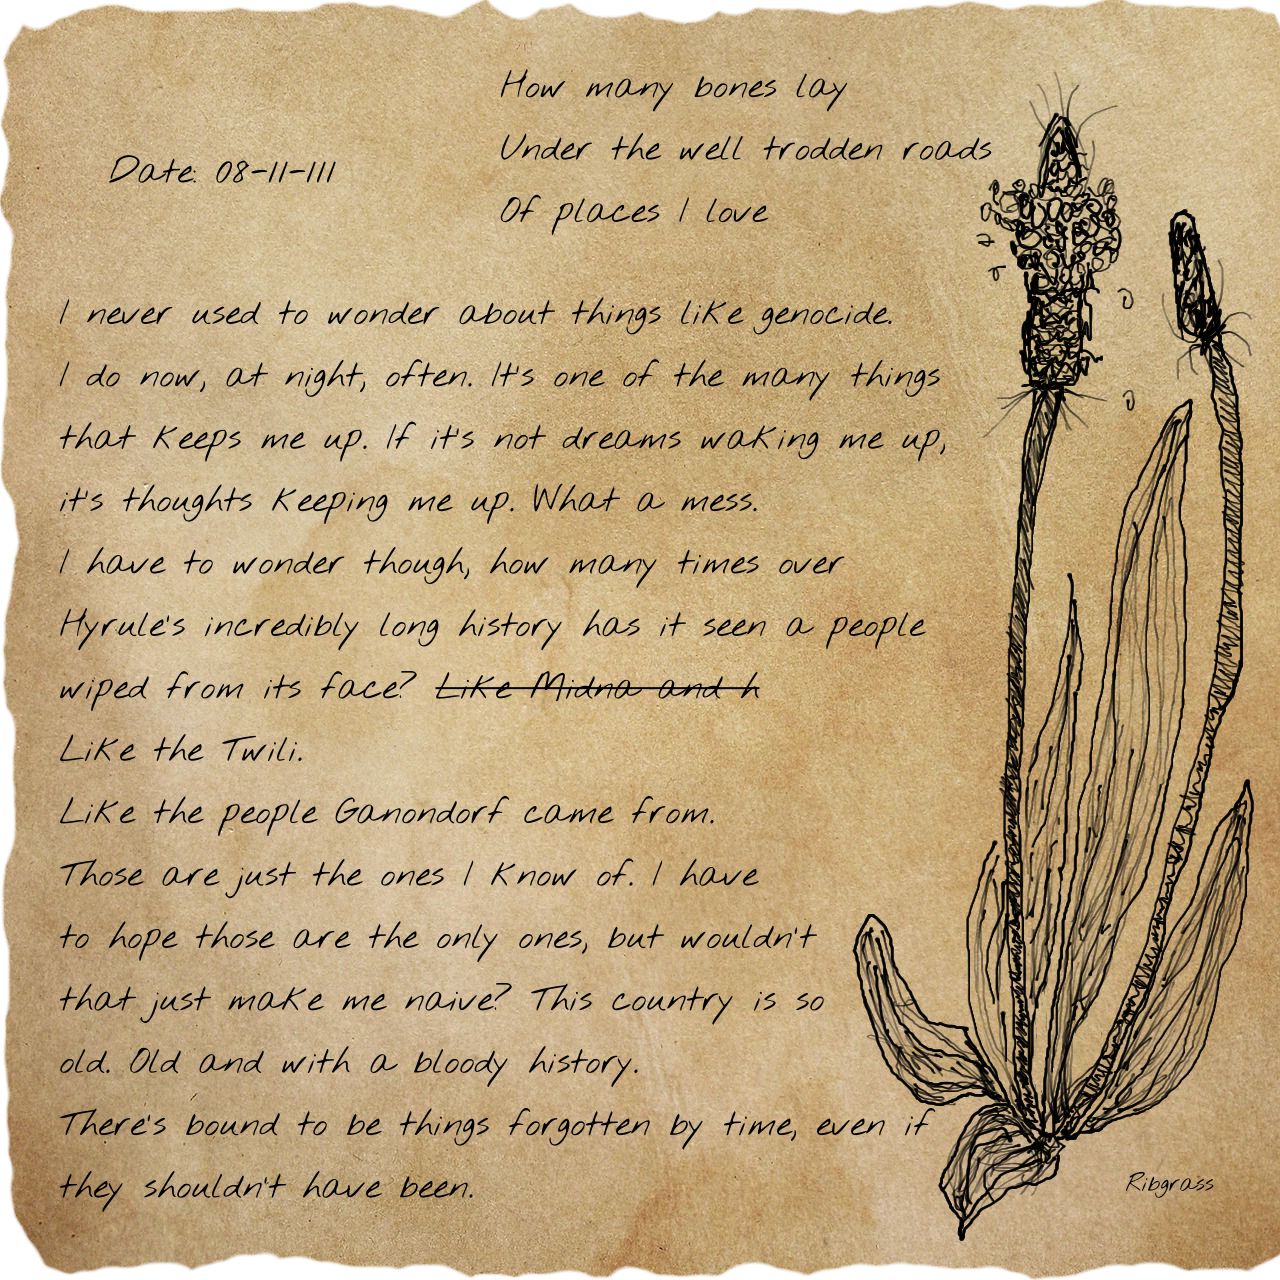 How many bones lay
Under the well trodden roads
Date: 08-11-111
Of places I love
I never used to wonder about things like genocide.
I do now, at night, often. It's one of the many things
that keeps me up. If it's not dreams waking me up,
it's thoughts keeping me up. What a mess.
I have to wonder though, how many times over
Hyrule's incredibly long history has it seen a people
wiped from its face? Like Midna and h
Like the Twili.
Like the people Ganondorf came from.
Those are just the ones I know of. I have
to hope those are the only ones, but wouldn't
that just make me naive? This country is so
old. Old and with a bloody history.
There's bound to be things forgotten by time, even if
they shouldn't have been.
Ribgrass